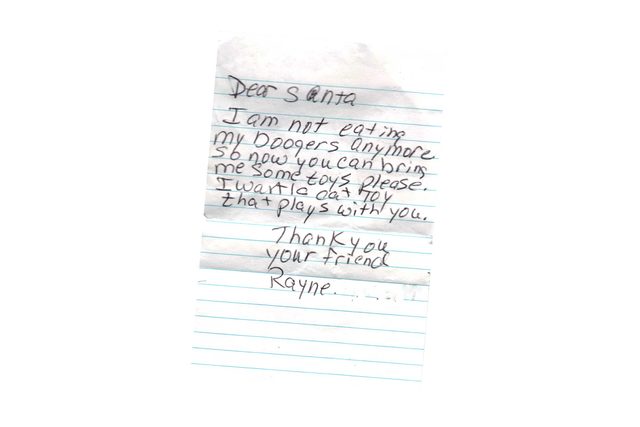 Dear Santa
I am not eating
my Boogers anymore
so now you can bring
me some toys please.
I want a cat toy
that plays with you.
Thank you
your friend
Rayne.